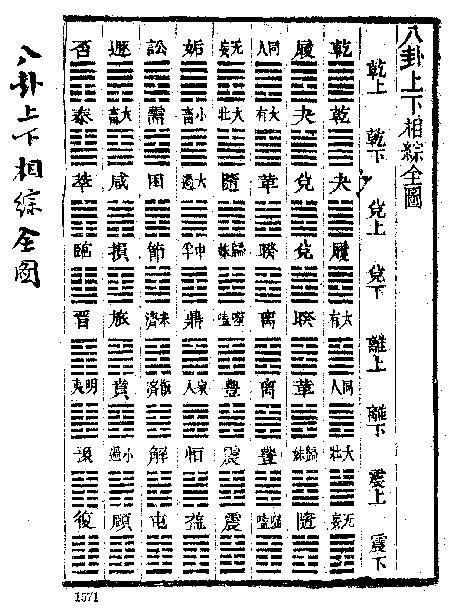 八卦上下相綜全圖
乾上 乾下 兌上 兌下 離上 離下 震上 震下
乾 乾 夬 履 大有 同人 大壯 无妄
履 夬 兌 兌 睽 革 歸妹 隨
同人 大有 革 睽 離 離 豐 噬嗑
无妄 大壯 隨 歸妹 噬嗑 豐 震 震
姤 小畜 大過 中孚 鼎 家人 恒 益
訟 需 困 節 未濟 既濟 解 屯
遯 大畜 咸 損 旅 賁 小過 頤
否 泰 萃 臨 晉 明夷 豫 復
八卦上下相綜全圖
1571